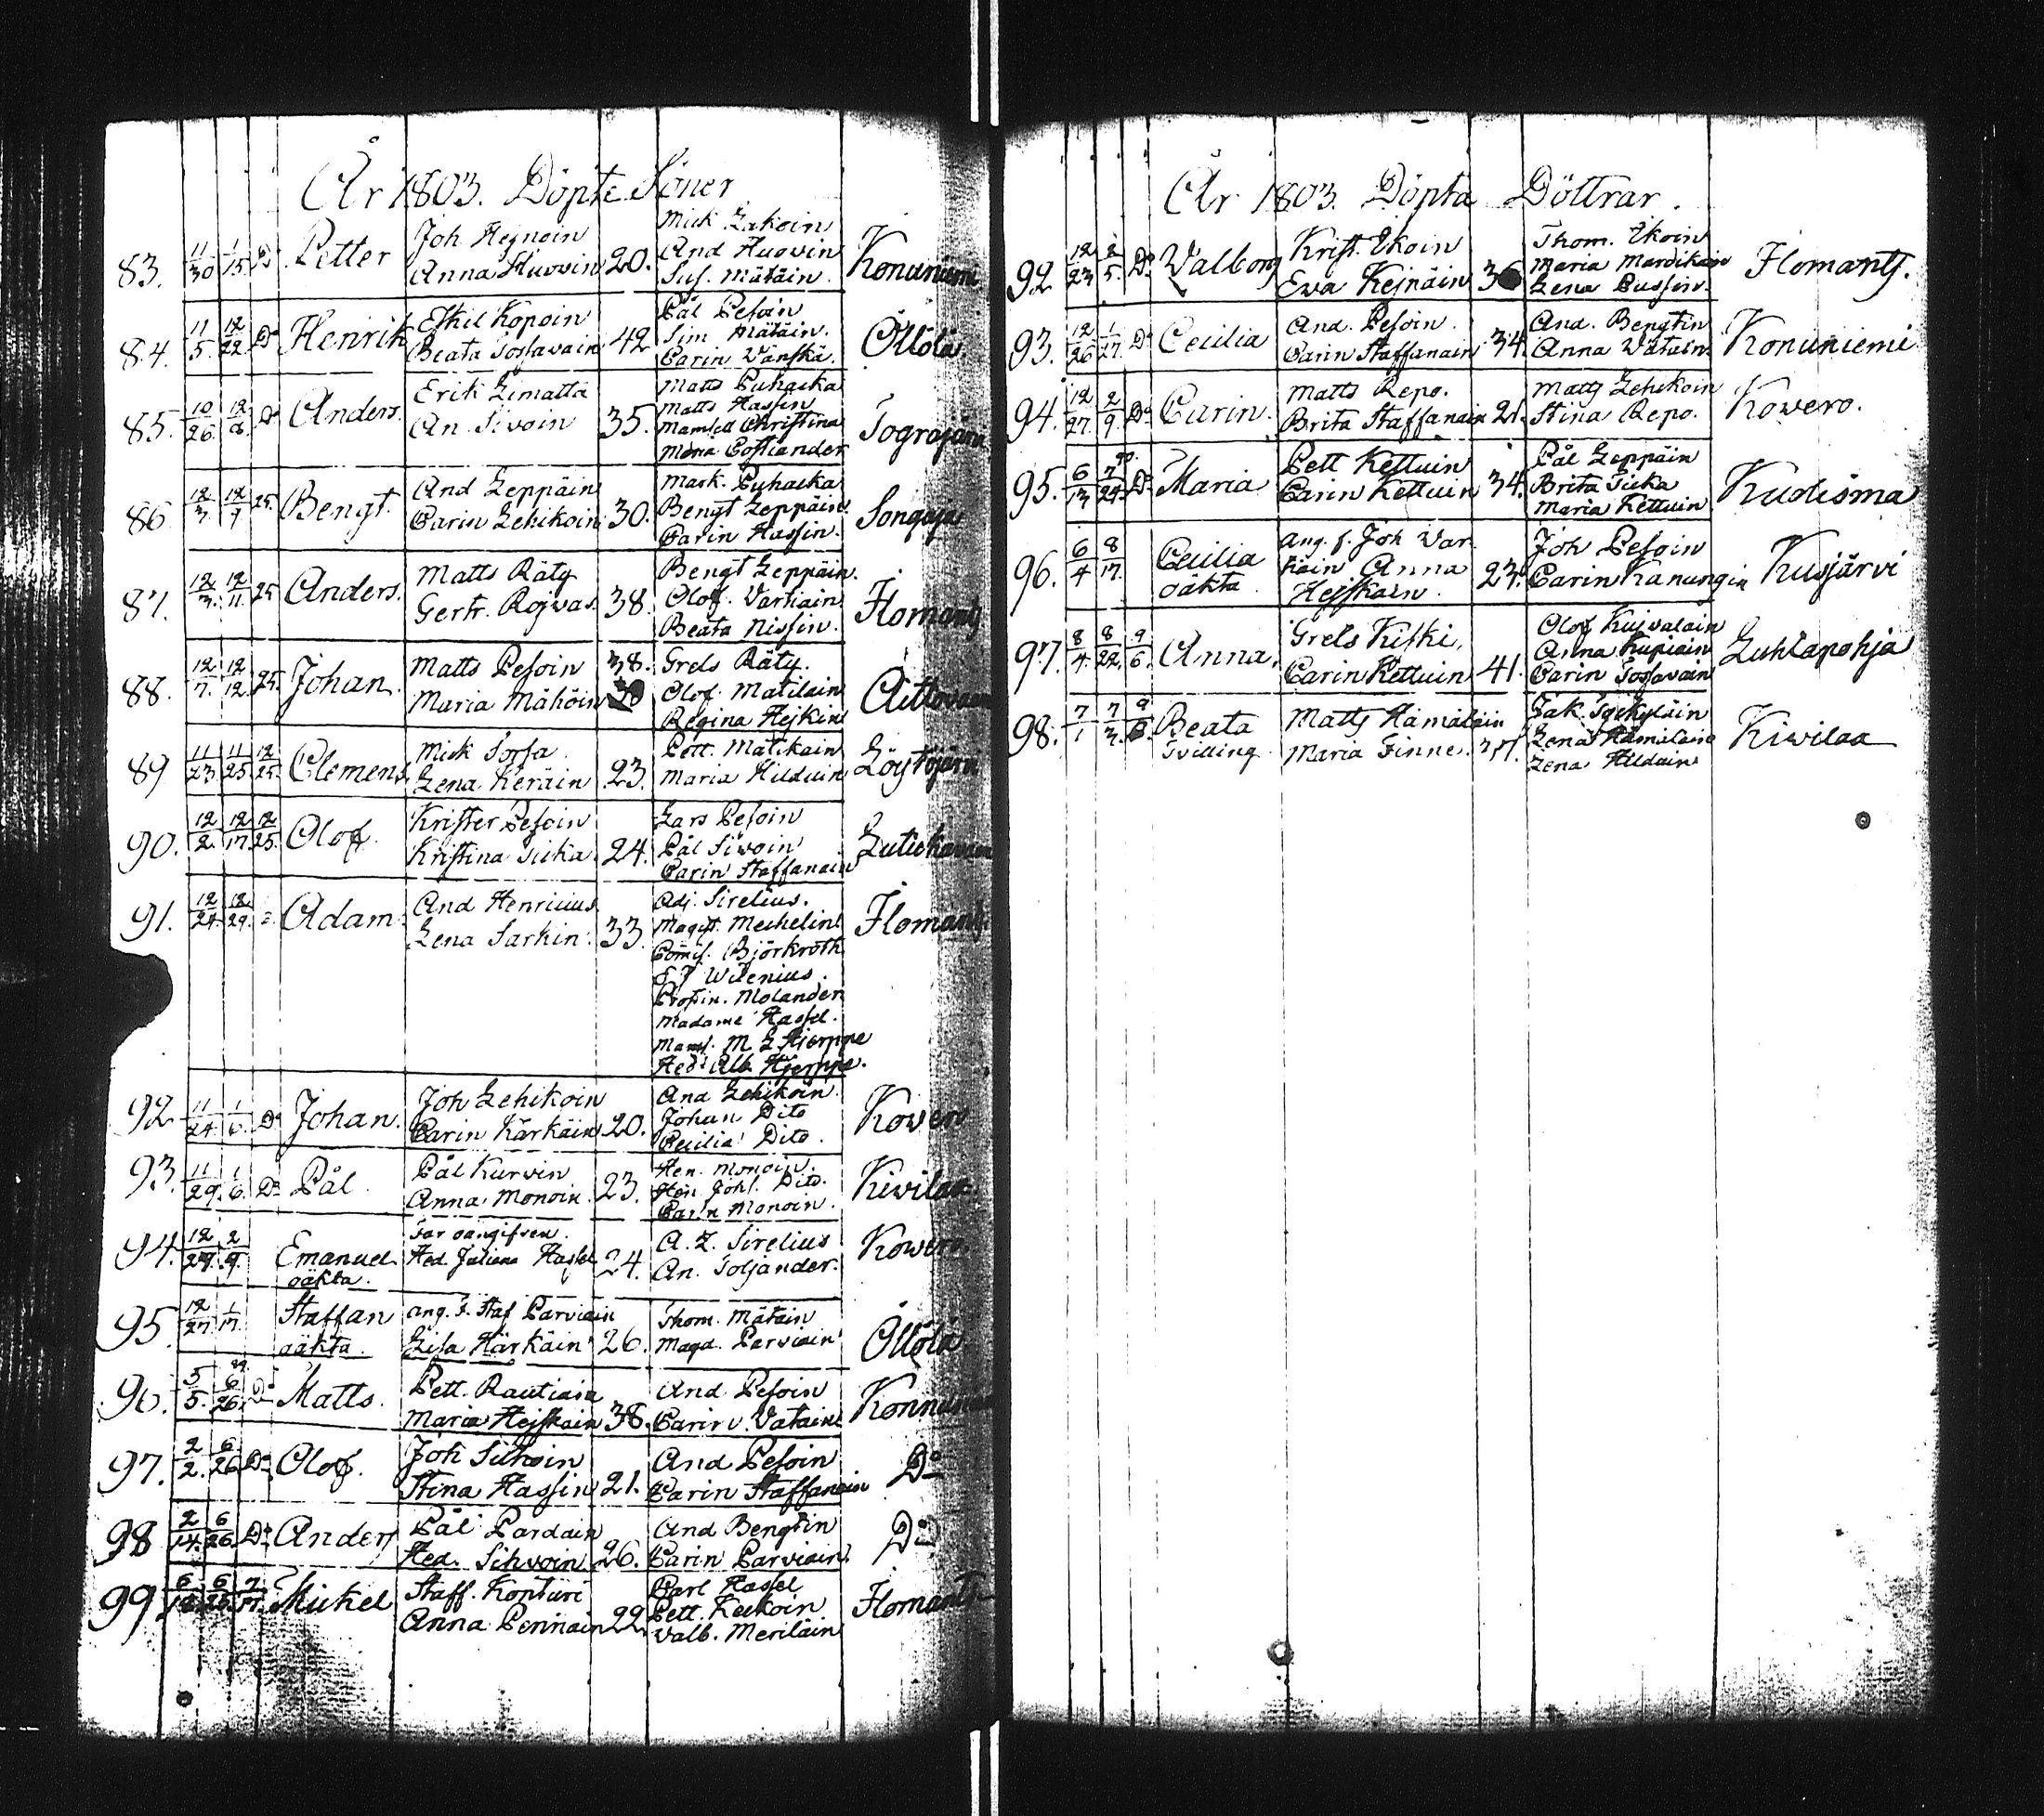 År 1803. Döpte Söner
83. 11/30 1/15 Do Petter Joh Hejnoin 20. Mick Lakoin Konuniemi
Anna Huovin And Huovin
Sus. Mätäin.
84. 11/5 12/22 Do Henrik Eskil Kopoin 42 Pål Pesoin Öllölä
Beata Tossavain Sim Mätäin.
Carin Vänskä.
85. 10/26 12/8 Do Anders. Erik Limatta 35. Matts Puhacka
An. Sivoin Matts Hassin
Mamsell Christina
Maria Costiander
86 12/3 12/7 25. Bengt. And Leppäin 30. Mark. Puhacka
Carin Lehikoin Bengt Leppäin.
Carin Hassin.
87. 12/3. 12/11. 25 Anders. Matts Räty 38. Bengt Leppäin. Ilomants
Gertr. Rojvas. Olof. Vartiain
Beata Nissin.
88. 12/7. 12/12. 25. Johan. Matts Pesoin 38. Grels Räty.
Maria Mähöin Olof. Matilain
Regina Hejkin
89 11/23. 11/25 12/25. Clemens Mick Sossa 23. Pett. Matikain
Lena Keräin Maria Hilduin
90. 12/2. 12/17 12/25. Olof. Krister Pesoin 24. Lars Pesoin
Kristina Sicka Pål Sivoin
Carin Staffanain
91. 12/24. 12/29. Adam. And Henricius 33. Adj. Sirelius. Ilomants
Lena Sarkin. Magist. Mechelin
Comis. Björkroth
Wilenius.
Molander
Madame Hassel.
Mams. M. L Hjerppe
Hed. Alb. Hjerppe.
92 11/24. 1/6. Do Johan. Joh Lehikoin 20. And Lehikoin. Kowero
Carin Kärkäin Johan Dito
Cecilia Dito.
93. 11/29. 1/6. Do Pål. Pål Kurvin 23. Hen. Monoin. Kivilax.
Anna Monoin. Hen. Johl. Dito.
Carin Monoin.
94. 12/29. 2/9. Emanuel Far oangifven 24. A. L. Sirelius Kowero.
oäkta. Hed. Juliana Hassel An. Toljander.
95 12/27. 1/17. Staffan ang. f. Staf Parviain 26. Thom. Mätain Öllölä
oäkta. Lisa Härkäin Magd. Parviain
96. 5/5. 6/26. Do Matts. Pett. Rautiain 38. And Pesoin
Maria Hejskain Carin Vatain
97. 2/2. 6/26 Do Olof. Joh Sihvoin 21. And Pesoin Do
Stina Hassin Carin Staffanain
98 2/14. 6/26. Do Anders Pål Pardain 26. And Bengtin Do
Hed. Sihvoin Carin Parviain
99 Mickel Staff. Konturi 22. Carl Hassel Ilomants
Anna Pennain Pett. Keckoin
Valb. Meriläin
År 1803. Döpta Döttrar.
92 12/23 2/5. Do Valborg Krist. Ikoin Thom. Ikoin Ilomants.
Ewa Kejnäin Maria Mardikain
Lena Pussin.
93. 12/26 1/27. Do Cecilia And. Pesoin. 34. And. Bengtin Konuniemi
Carin Staffanain Anna Vätäin.
94. 12/27. 2/9. Do Carin. Matts Repo. 21. Matts Lehikoin Kowero.
Brita Staffanain Stina Repo.
95. 6/13 7/24. Do Maria Pett Kettuin 34. Pål Leppäin Kudisma
Carin Kettuin Brita Sicka
Maria Kettuin
96. 6/4 8/17. Cecilia ang. f. Joh Var- 23. Joh Pesoin Kusjärvi
oäkta. kain Anna Carin Kanungin
Hejskain.
97. 8/4. 8/22. 9/6. Anna. Grels Kiski, 41. Olof Kujvalain Luhtapohja
Carin Kettuin Anna Kupiain
Carin Tossavain
98. 7/1 7/3. Beata Matts Hämäläin Lena Hämäläin Kiwilax
Tvilling. Maria Finne. Lena Hilduin